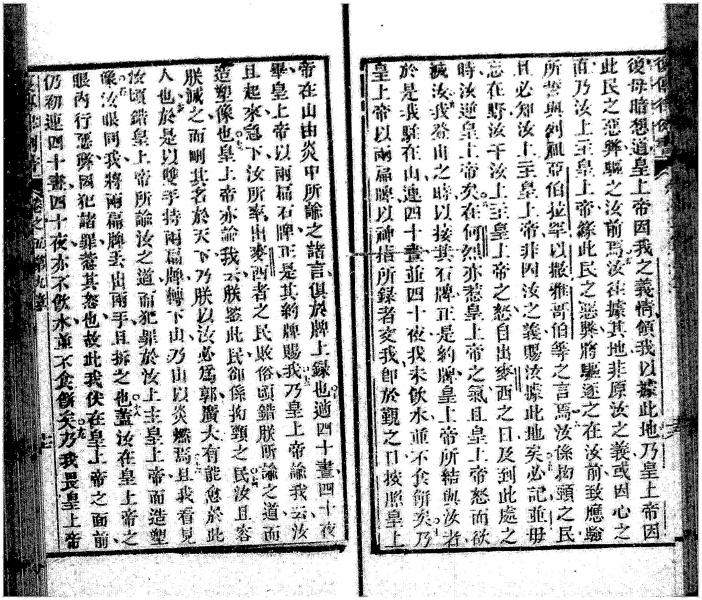 後毋暗想道皇上帝因我之義情領我以據此地乃皇上帝因
此民之惡弊驅之汝前焉汝往據其地非原汝之義或因心之
直乃汝上主皇上帝緣此民之惡弊將驅逐之在汝前致應驗
所誓與列祖亞伯拉罕以撒雅哥伯等之言焉汝係拗頸之民
且必知汝上主皇上帝非因汝之義賜汝據此地矣必記並毋
忘在野汝干汝上主皇上帝之怒自出麥西之日及到此處之
時汝逆皇上帝矣在何烈亦惹皇上帝之氣且皇上帝怒而欲
滅汝我登山之時以接其石牌正是約牌皇上帝所結與汝者
於是我駐在山連四十晝並四十夜我未飲水並不食餅矣乃
皇上帝以兩扁牌以神指所錄者交我卽於覲之日按照皇上
帝在山由炎中所諭之諸言俱於牌上錄也適四十晝四十夜
畢皇上帝以兩扁石牌正是其約牌賜我乃皇上帝諭我云汝
且起來急下汝所率出麥西者之民敗俗頃錯朕所諭之道而
造塑像也皇上帝亦諭我云朕鑒此民卻係拗頸之民汝且容
朕滅之而刪其名於天下乃朕以汝必爲郭廣大有能愈於此
人也於是以雙手持兩扁牌轉下山乃山以炎燃焉且我看見
汝頃錯皇上帝所諭汝之道而犯罪於汝上主皇上帝而造塑
像汝眼同我將兩扁牌丟出兩手且拆之也蓋汝在皇上帝之
眼內行惡弊因犯諸罪惹其怒也故此我伏在皇上帝之面前
仍初連四十晝四十夜亦不飲水並不食餅矣乃我畏皇上帝